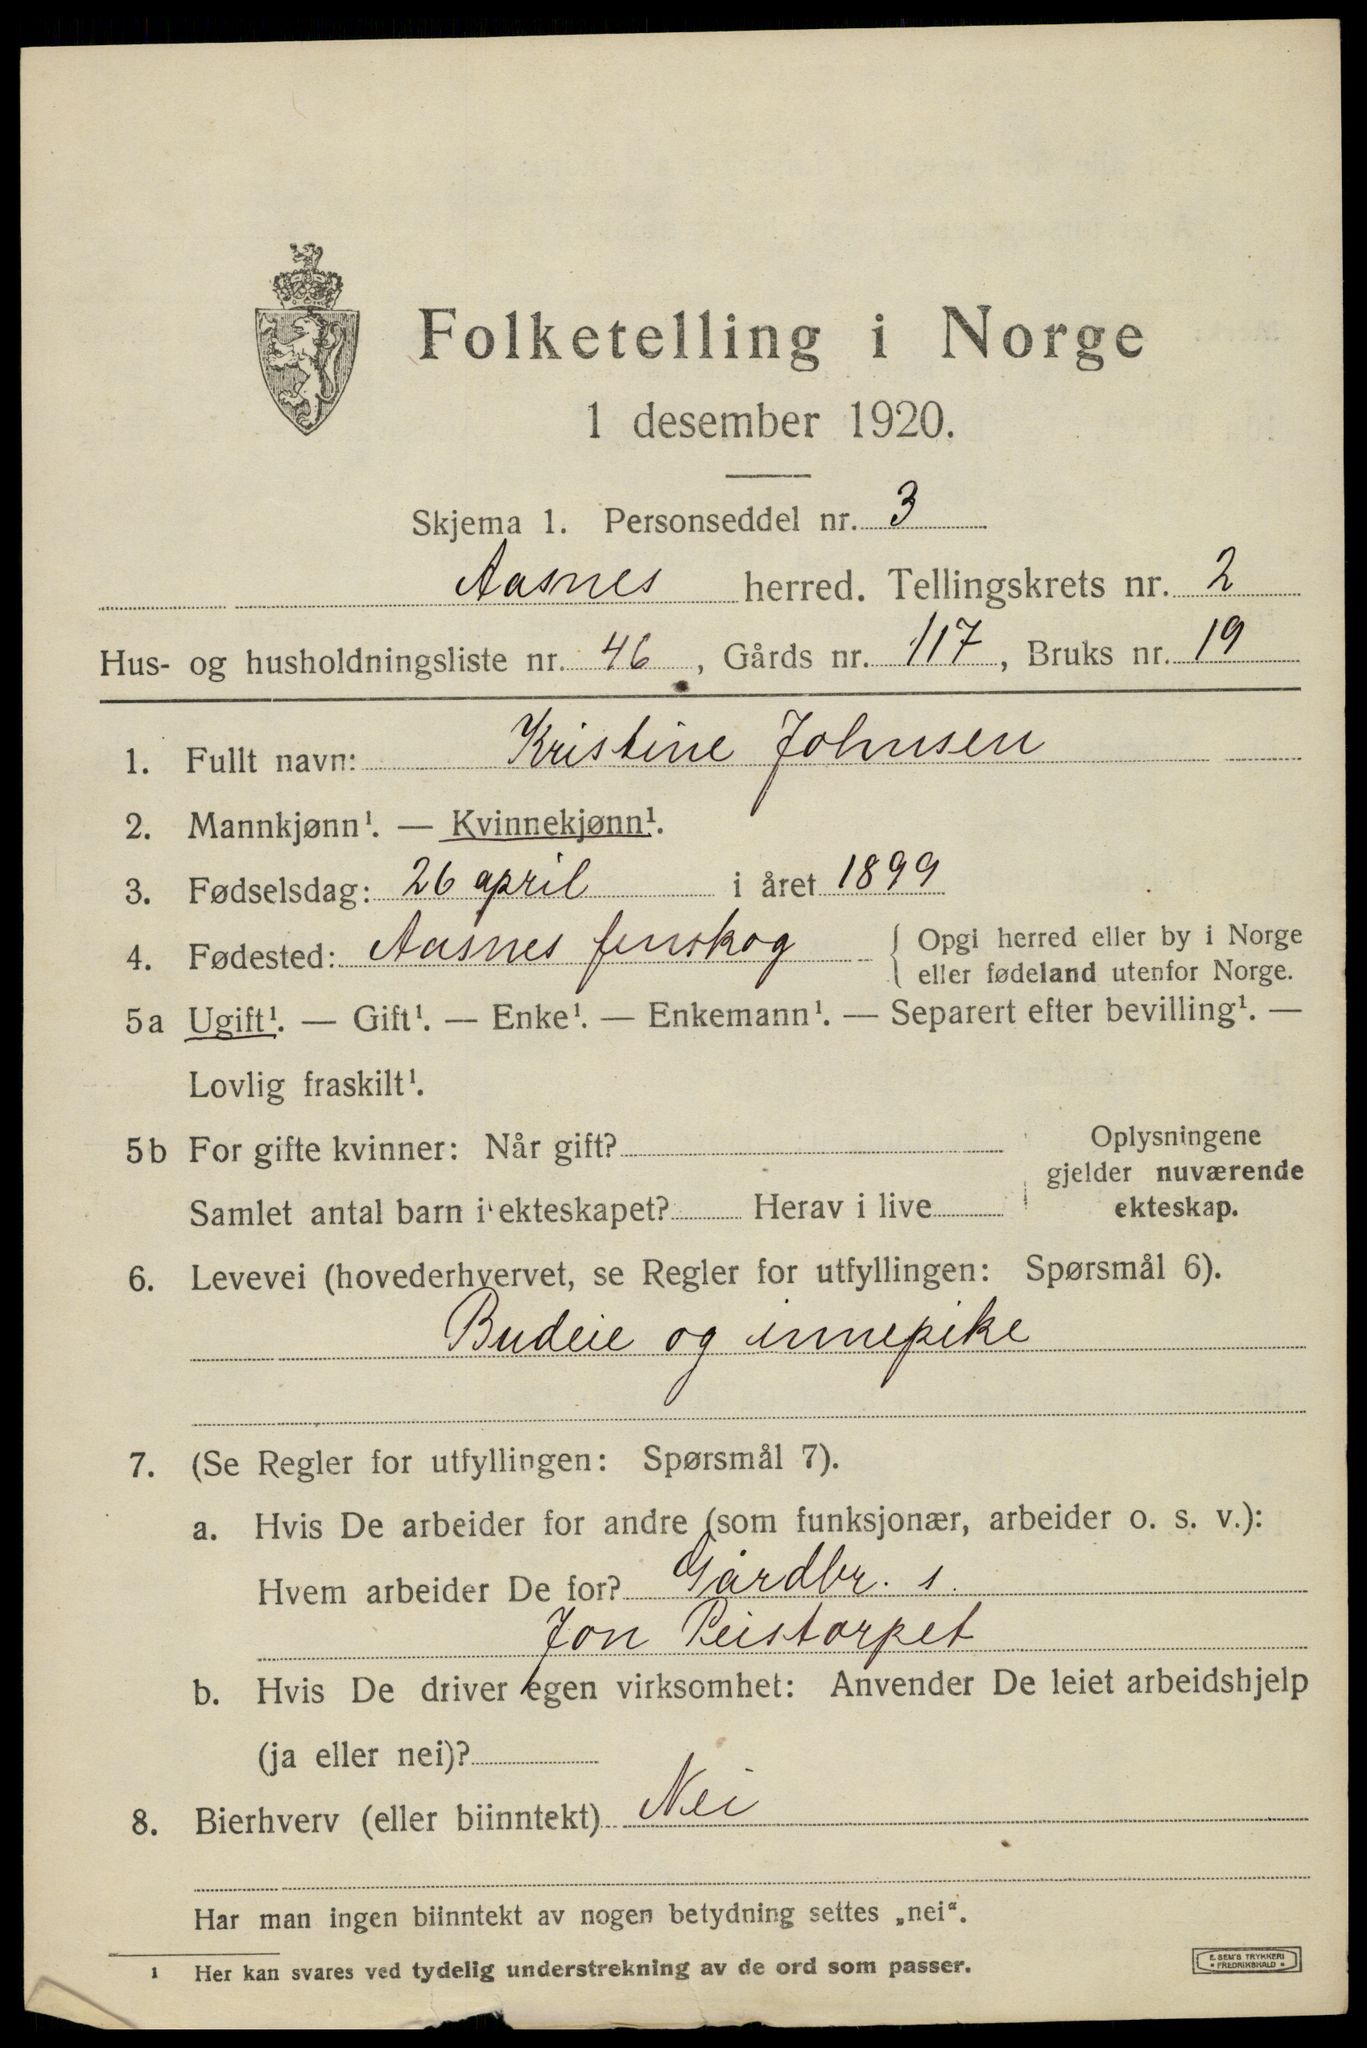 Folketelling i Norge
1 desember 1920.
Skjema 1. Personseddel nr. 3
Aasnes herred. Tellingskrets nr. 2
Hus- og husholdningsliste nr. 46, Gårds nr. 117, Bruks nr. 19
1. Fullt navn: Kristine Johnsen
2. Mannkjønn¹. — Kvinnekjønn¹.
3. Fødselsdag: 26 april i året 1899
4. Fødested: Aasnes finskog { Opgi herred eller by i Norge
eller fødeland utenfor Norge.
5a Ugift¹. — Gift¹. — Enke¹. — Enkemann¹. — Separert efter bevilling¹. —
Lovlig fraskilt¹.
5b For gifte kvinner: Når gift?
Samlet antal barn i ekteskapet? Herav i live
Oplysningene
gjelder nuværende
ekteskap.
6. Levevei (hovederhvervet, se Regler for utfyllingen: Spørsmål 6).
Budeie og innepike
7. (Se Regler for utfyllingen: Spørsmål 7).
a. Hvis De arbeider for andre (som funksjonær, arbeider o. s. v.):
Hvem arbeider De for? Gårdbr. s.
Jon Peistorpet
b. Hvis De driver egen virksomhet: Anvender De leiet arbeidshjelp
(ja eller nei)?
8. Bierhverv (eller biinntekt) Nei
Har man ingen biinntekt av nogen betydning settes „nei“.
¹ Her kan svares ved tydelig understrekning av de ord som passer.
E. SEM'S TRYKKERI
• FREDRIKSHALD •